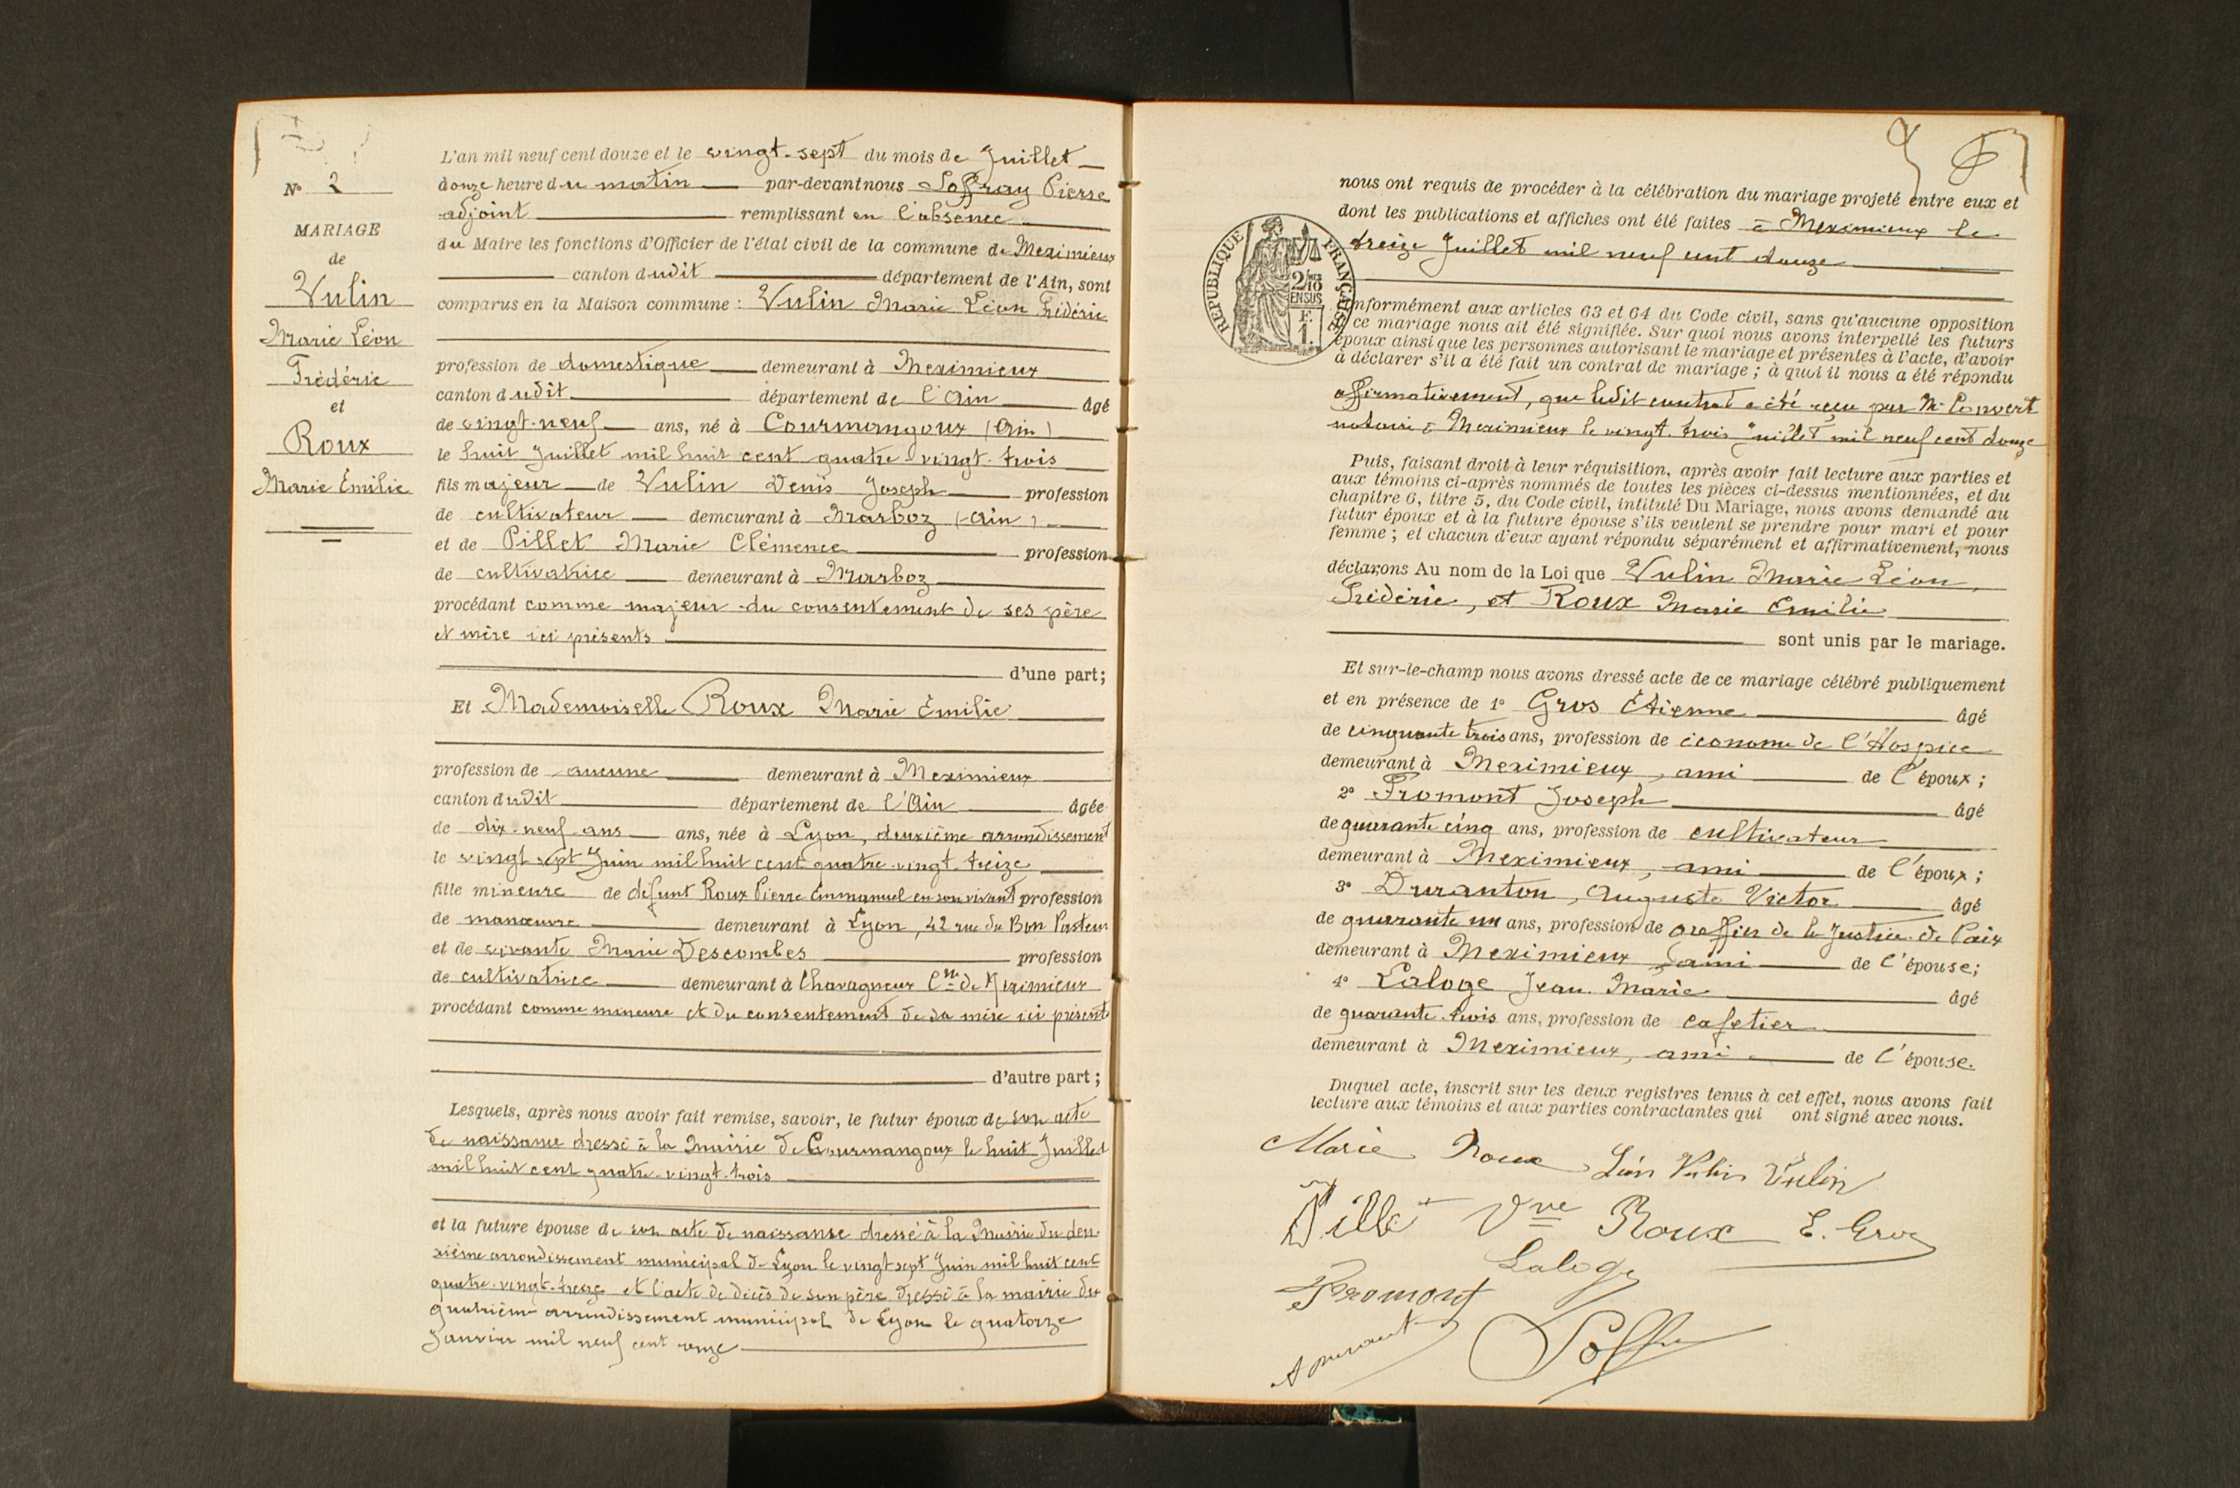 N° 2
MARIAGE
de
Vulin
Marie Léon
Frédéric
et
Roux
Marie Émilie
L'an mil neuf cent douze et le vingt-sept du mois de Juillet
douze heure du matin par-devant nous Loffray Pierre
adjoint remplissant en l'absence
du Maire les fonctions d'Officier de l'état civil de la commune de Meximieux
canton dudit département de l'Ain, sont
comparus en la Maison commune : Vulin Marie Léon Frédéric
profession de domestique demeurant à Meximieux
canton dudit département de l'Ain âgé
de vingt-neuf ans, né à Courmangoux (Ain)
le huit Juillet mil huit cent quatre-vingt-trois
fils majeur de Vulin Denis Joseph profession
de cultivateur demeurant à Marboz (Ain)
et de Pillet Marie Clémence profession
de cultivatrice demeurant à Marboz
procédant comme majeur du consentement de ses père
et mère ici présents
d'une part;
Et Mademoiselle Roux Marie Émilie
profession de aucune demeurant à Meximieux
canton dudit département de l'Ain âgée
de dix-neuf ans ans, née à Lyon, deuxième arrondissement
le vingt sept Juin mil huit cent quatre-vingt-treize
fille mineure de defunt Roux Pierre Emmanuel en son vivant profession
de manœuvre demeurant à Lyon, 42 rue du Bon Pasteur
et de vivante Marie Descombes profession
de cultivatrice demeurant à Chavagneux Cne de Meximieux
procédant comme mineure et du consentement de sa mère ici présente
d'autre part ;
Lesquels, après nous avoir fait remise, savoir, le futur époux de son acte
de naissance dressé à la Mairie de Courmangoux le huit Juillet
mil huit cent quatre-vingt-trois
et la future épouse de son acte de naissance dressé à la Mairie du deu-
xième arrondissement municipal de Lyon le vingt sept Juin mil huit cent
quatre-vingt-treize et l'acte de décès de son père dressé à la mairie du
quatrième arrondissement municipal de Lyon le quatorze
Janvier mil neuf cent onze
nous ont requis de procéder à la célébration du mariage projeté entre eux et
dont les publications et affiches ont été faites à Meximieux le
treize Juillet mil neuf cent douze
REPUBLIQUE FRANÇAISE
2/10
EN SUS
F.
1.
nformément aux articles 63 et 64 du Code civil, sans qu'aucune opposition
ce mariage nous ait été signifiée. Sur quoi nous avons interpellé les futurs
époux ainsi que les personnes autorisant le mariage et présentes à l'acte, d'avoir
à déclarer s'il a été fait un contrat de mariage ; à quoi il nous a été répondu
affirmativement, que ledit contrat a été reçu par Me Convert
notaire à Meximieux le vingt-trois Juillet mil neuf cent douze
Puis, faisant droit à leur réquisition, après avoir fait lecture aux parties et
aux témoins ci-après nommés de toutes les pièces ci-dessus mentionnées, et du
chapitre 6, titre 5, du Code civil, intitulé Du Mariage, nous avons demandé au
futur époux et à la future épouse s'ils veulent se prendre pour mari et pour
femme ; et chacun d'eux ayant répondu séparément et affirmativement, nous
déclarons Au nom de la Loi que Vulin Marie Léon
Frédéric, et Roux Marie Emilie
sont unis par le mariage.
Et sur-le-champ nous avons dressé acte de ce mariage célébré publiquement
et en présence de 1° Gros Étienne âgé
de cinquante trois ans, profession de économe de l'Hospice
demeurant à Meximieux, ami de l'époux ;
2° Fromont Joseph âgé
de quarante cinq ans, profession de cultivateur
demeurant à Meximieux, ami de l'époux ;
3° Duranton, Auguste Victor âgé
de quarante un ans, profession de greffier de la Justice de Paix
demeurant à Meximieux, ami de l'épouse;
4° Laloge Jean Marie âgé
de quarante-trois ans, profession de cafetier
demeurant à Meximieux, ami de l'épouse.
Duquel acte, inscrit sur les deux registres tenus à cet effet, nous avons fait
lecture aux témoins et aux parties contractantes qui ont signé avec nous.
Marie Roux Léon Vulin Vulin
Pillet Vve Roux E. Gros
Laloge
Fromont